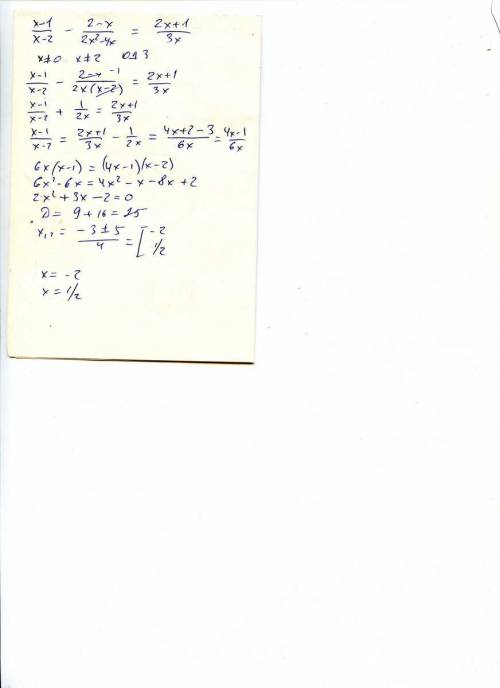 x-1/x-2 - 2-x/2x²-4x = 2x+1/3x
x≠0 x≠2 ОДЗ
x-1/x-2 - 2-x -1/2x(x-2) = 2x+1/3x
x-1/x-2 + 1/2x = 2x+1/3x
x-1/x-2 = 2x+1/3x - 1/2x = 4x+2-3/6x = 4x-1/6x
6x(x-1) = (4x-1)(x-2)
6x²-6x = 4x²-x-8x+2
2x²+3x-2=0
D= 9+16=25
x₁,₂ = -3±5/4 = [-2 1/2
x= -2
x= 1/2